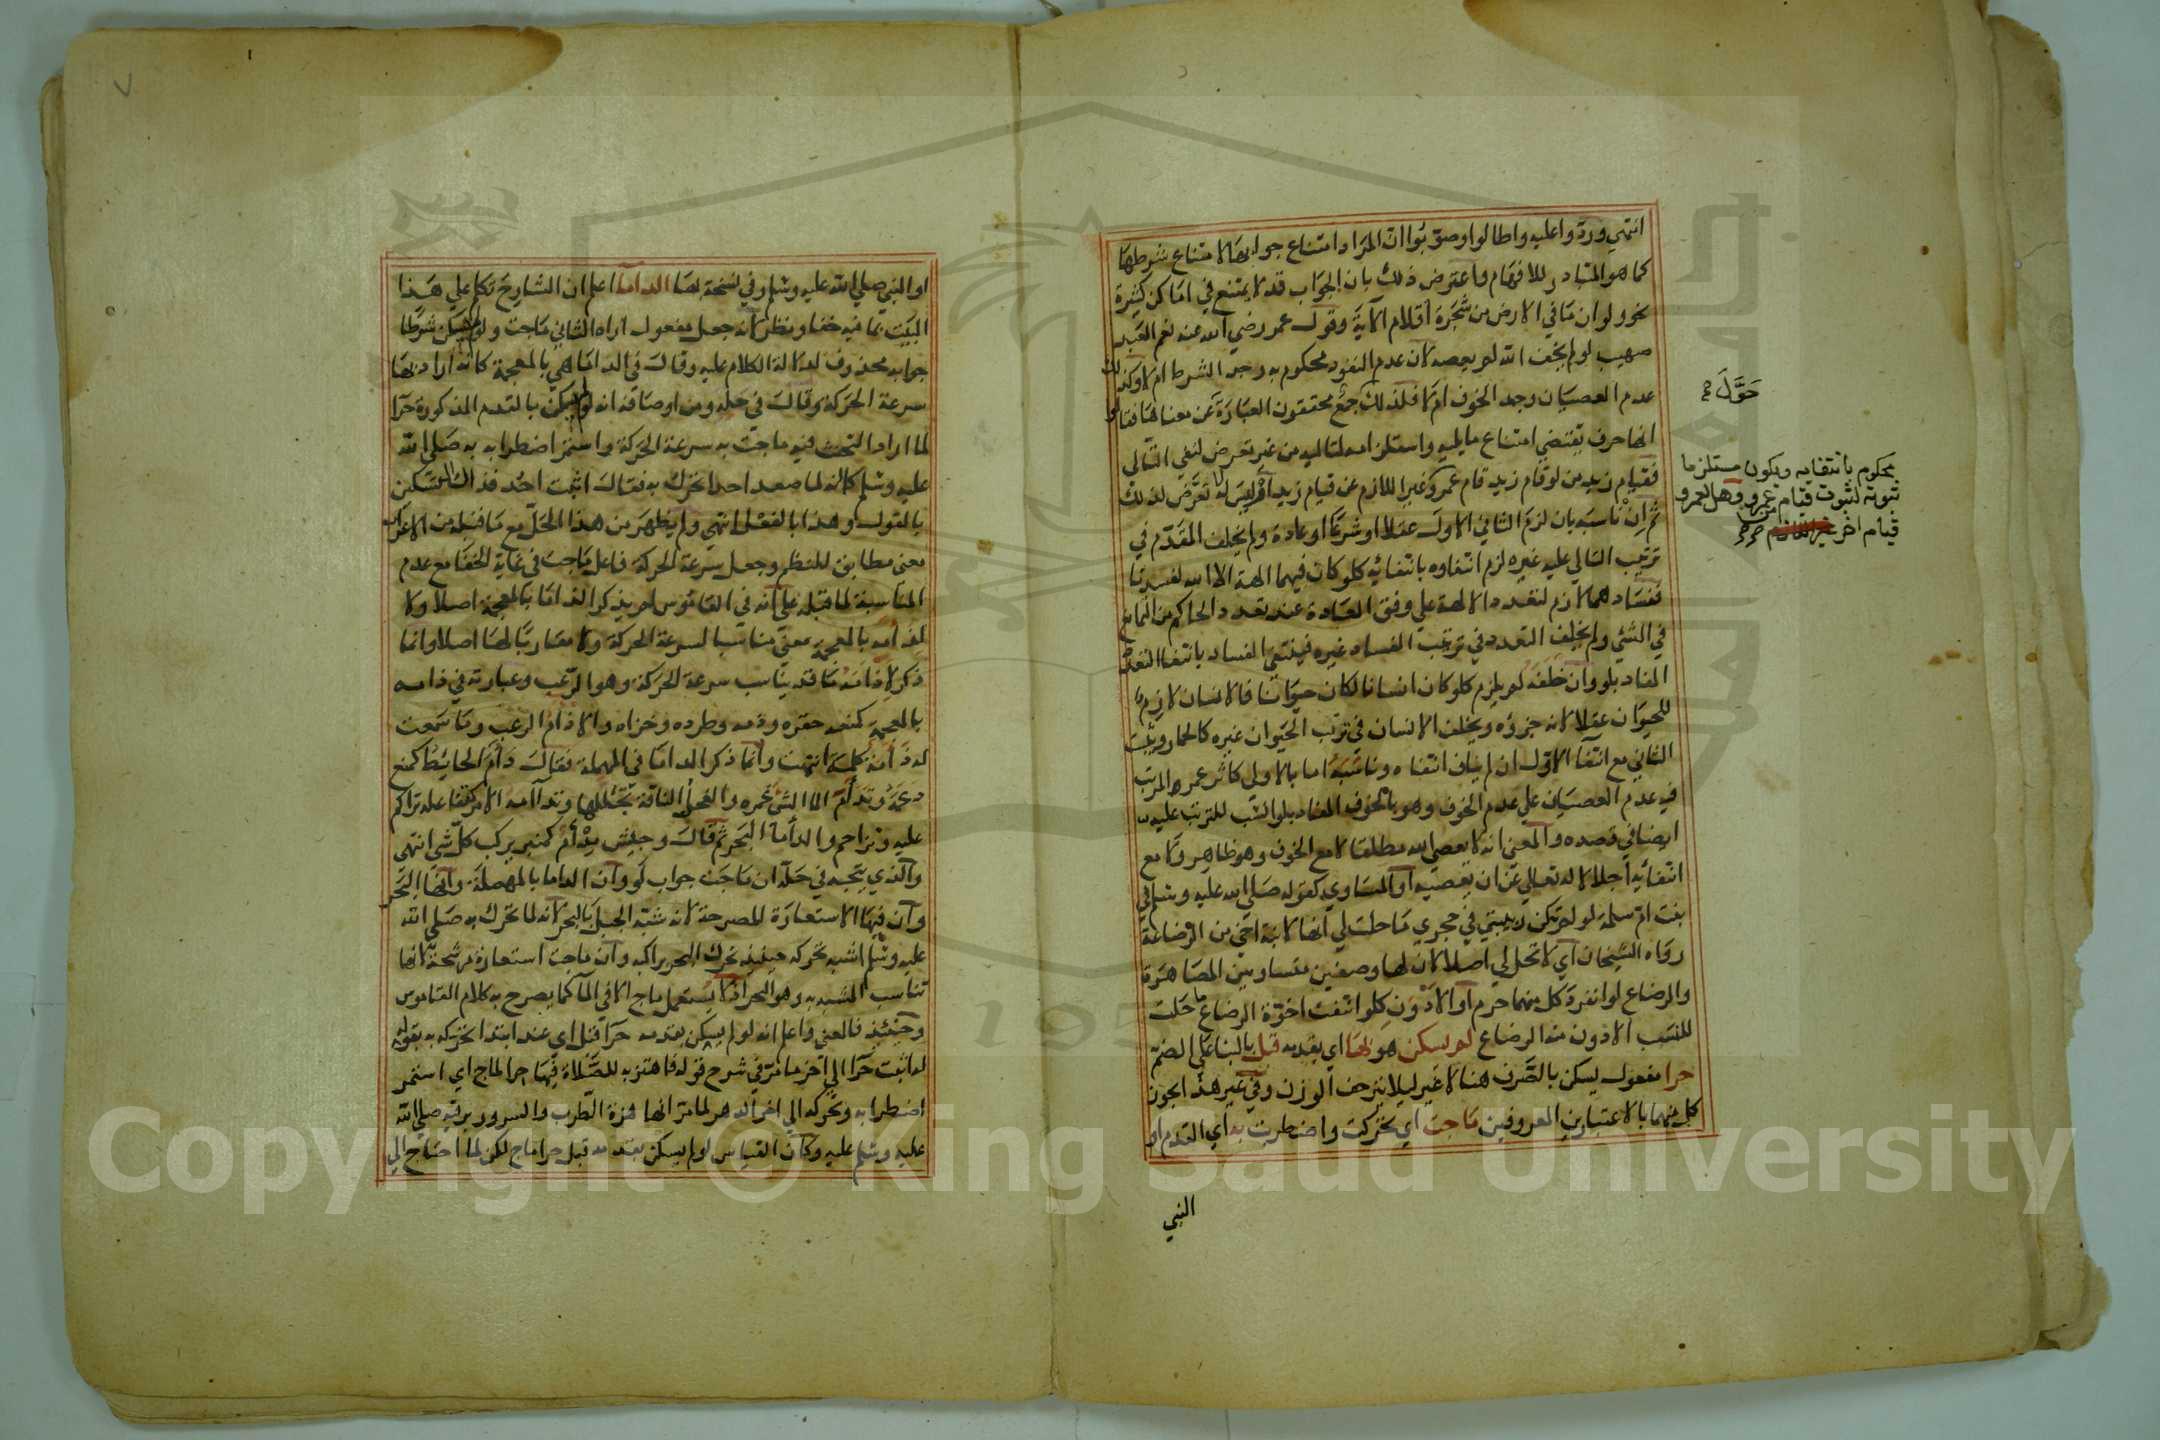 انتهي وردوا عليه واطالوا وصوبوا ان المراد امتناع جوابها لامتناع شرطها
كما هو المتبادر للافهام واعترض ذلك بان الجواب قد لا يمتنع في اماكن كثيرة
نحو ولو ان ما في الارض من شجرة اقلام الآية وقول عمر رضي الله عنه نعم العبد
صهيب لو لم يخف الله لم يعصه لان عدم النفود محكوم به وجد الشرط ام لا وكذلك
عدم العصيان وجد الخوف ام لا فلذلك جمع محققون العبارة عن معناها فقالوا
انها حرف يقتضي امتناع ما يليه واستلزامه لتاليه من غير تعرض لنفي التالي
فقيام زيد من لو قام زيد قام عمرو غير اللازم عن قيام زيد او ليس له لا تعرض لذلك
ثم ان ناسبه بان لزم الثاني الاول عقلا او شرعا او عادة ولم يخلف المقدم في
ترتيب التالي عليه غيره لزم انتفاوه بانتفائه كلو كان فيهما الهة الا الله لفسدتا
ففسادهما لازم لتعدد الالهة علي وفق العادة عند تعدد الحاكم من التمانع
في الشئي ولم يخلف التعدد في ترتب الفساد غيره فينتفي الفساد بانتفا التعدد
المفاد بلو وان خلفه لم يلزم كلو كان انسانا لكان حيوانا فالانسان لازم
للحيوان عقلا لانه جزؤه ويخلف الانسان في ترتب الحيوان غيره كالحمار ويثبت
الثاني مع انتفا الاول ان لم يناف انتفاه وناسبه اما بالاولي كاثر عمر المرتب
فيه عدم العصيان علي عدم الخوف وهو بالخوف المفاد بلو انسب للترتب عليه
ايضا في قصده والمعني انه لا يعصي الله مطلقا لا مع الخوف وهو ظاهر ولا مع
انتفائه اجلالا له تعالي عن ان يعصيه او المساوي كقوله صلي الله عليه وسلم في
بنت ام سلمة لو لم تكن ربيبتي في حجري ما حلت لي انها لابنة اخي من الرضاعة
رواه الشيخان اي لا تحل لي اصلا لان لها وصفين متساويين المصاهرة
والرضاع لو انفرد كل منهما حرم او الادون كلو انتفت اخوة الرضاع ما حلت
للنسب الادون من الرضاع لم يسكن هو بها اي بقدمه قبل بالبنا علي الضم
حرا مفعول يسكن بالصرف هنا لا غير ليلا ينزحف الوزن وفي غير هذا يجوز
كل منهما بالاعتبارين المعروفين ماجت اي تحركت واضطربت به اي القدم او
النبي
حول
محكوم بانتفايه وبكون مستلزما
ثبوته لثبوت قيام عمرو وهل لعمرو
قيام اخر
او النبي صلي الله عليه وسلم وفي نسخة بها الداما اعلم ان الشارح تكلم علي هذا
البيت بما فيه خفا ونظر لانه جعل مفعول اراه الثاني ماجت ولو لم يسكن شرطا
جوابه محذوف لدلالة الكلام عليه وقال في الداما هي بالمعجمة كانه اراد بها
سرعة الحركة وقال في حله ومن اوصافه انه لو لم يسكن بالقدم المذكورة حرا
لما اراد التحنث فيه ماجت به سرعة الحركة واستمر اضطرابه به صلي الله
عليه وسلم لانه لما صعد احدا تحرك به فقال اثبت احد فذاك التسكين
بالقول وهذا بالفعل انتهي ولم يظهر من هذا الحل مع ما قبله من الاعراب
معني مطابق للنظم وجعل سرعة الحركة فاعل ماجت في غاية الخفا مع عدم
المناسبة لما قبله علي انه في القاموس لم يذكر الذاما بالمعجمة اصلا ولا
لذامه بالمعجمة معني مناسبا لسرعة الحركة ولا مقاربا لها اصلا وانما
ذكر لاذامه ما قد يناسب سرعة الحركة وهو الرعب وعبارته في ذامه
بالمعجمة كمنعه حقره وذمه وطرده وخزاه والاذام الرعب وما سمعت
له ذامة كلمة انتهت وانما ذكر الداما في المهملة فقال دأم الحايط كمنع
دعمه وتدأم الماء الشئ غمره والفحل الناقة تجللها وتدآمه الامر كتفاعله تراكم
عليه وتزاحم والدأما البحر ثم قال وجيش مدأم كمنبر يركب كل شئ انتهي
والذي يتجه في حله ان ماجت جواب لو وان الداما بالمهملة وانها البحر
وان فيها الاستعارة المصرحة لانه شبه الجبل بالبحر لانه لما تحرك به صلي الله
عليه وسلم اشبه تحركه حينيذ تحرك البحر براكبه وان ماجت استعارة مرشحة لانها
تناسب المشبه به وهو البحر اذ لا يستعمل ماج الا في الماء كما يصرح به كلام القاموس
وحينئذ فالمعني واعلم انه لو لم يسكن بقدمه حرا قبل اي عند ابتدا تحركه به بقوله
له اثبت حرا الي اخر ما مر في شرح قوله فاهتز به للصلاة فيها حرا لماج اي استمر
اضطرابه وتحركه الي اخر الدهر لما مر انها هزة الطرب والسرور برقيه صلي الله
عليه وسلم عليه وكان القياس لو لم يسكن بقدمه قبل حرا ماج لكن لما احتاج الي
Copyright © King Saud University